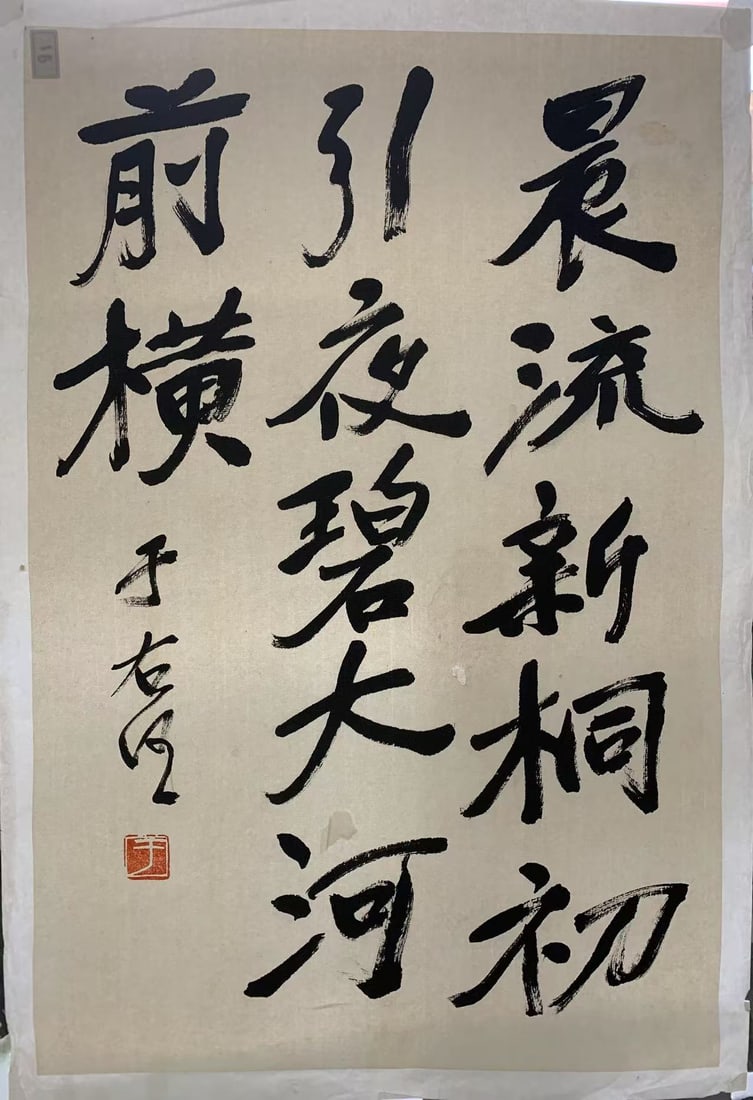 晨流新桐初
引夜碧大河
前横
于右任